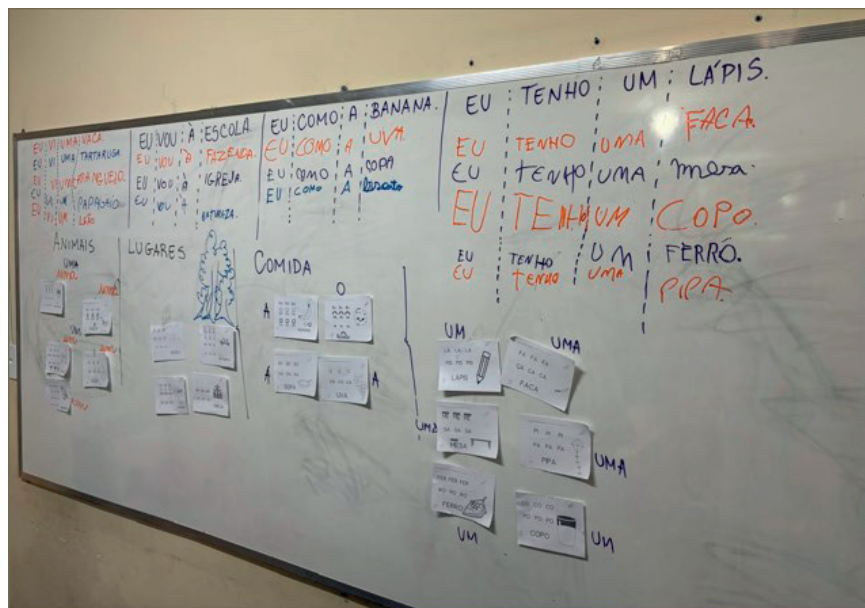 EU VI UMA VACA.
EU VI UMA TARTARUGA.
EU VI UM
EU VI UM PAPAGAIO.
EU VI UM LEÃO
EU VOU À ESCOLA.
EU VOU À FAZENDA.
EU VOU À IGREJA.
EU VOU À NATUREZA.
EU COMO A BANANA.
EU COMO A UVA.
EU COMO A SOPA
EU COMO A
EU TENHO UM LÁPIS.
EU TENHO UMA FACA.
EU TENHO UMA mesa.
EU TENHO UM COPO.
EU TENHO UM FERRO.
EU TENHO UMA PIPA.
ANIMAIS
UMA
LUGARES
COMIDA
A
O
A
UVA
A
UM
LÁPIS
UMA
FA FA FA
CA CA CA
FACA
UMA
SA SA SA
MESA
PI PI PI
PA PA PA
PIPA
UMA
FER FER FER
RO RO RO
FERRO
UM
CO CO
PO PO PO
COPO
UM